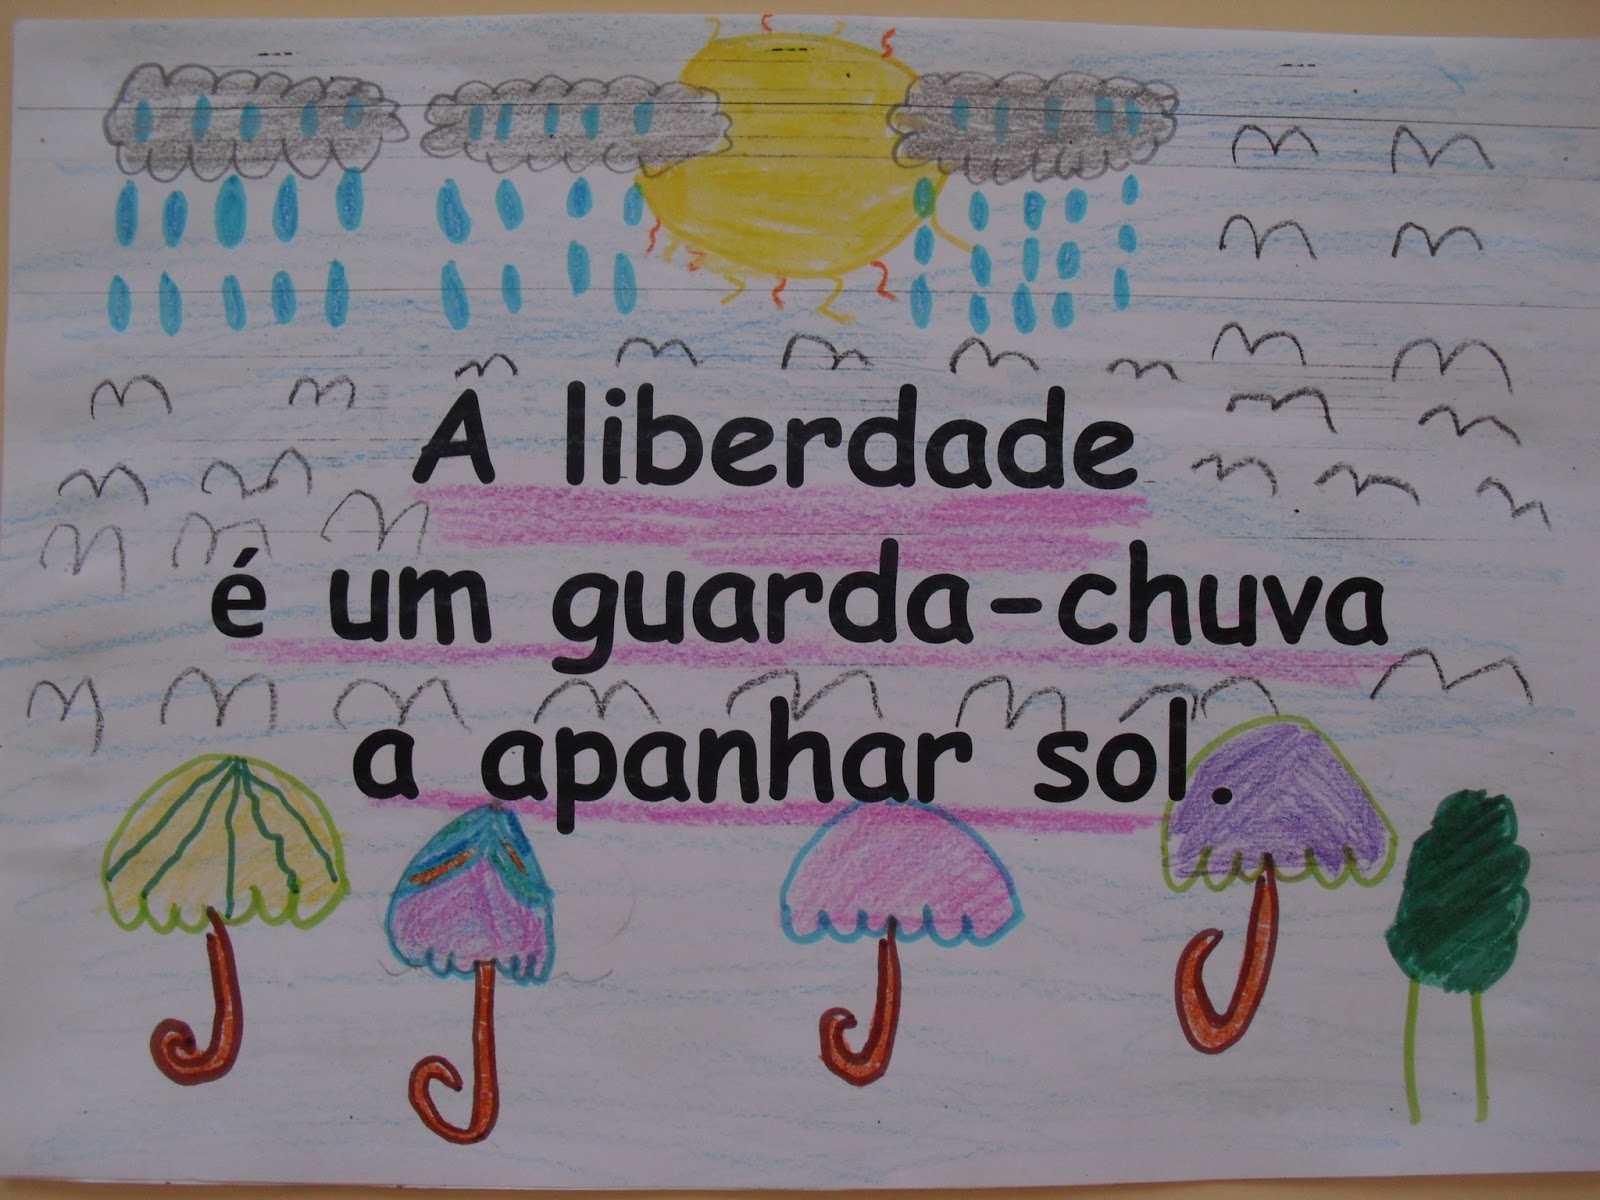 A liberdade
é um guarda-chuva
a apanhar sol.